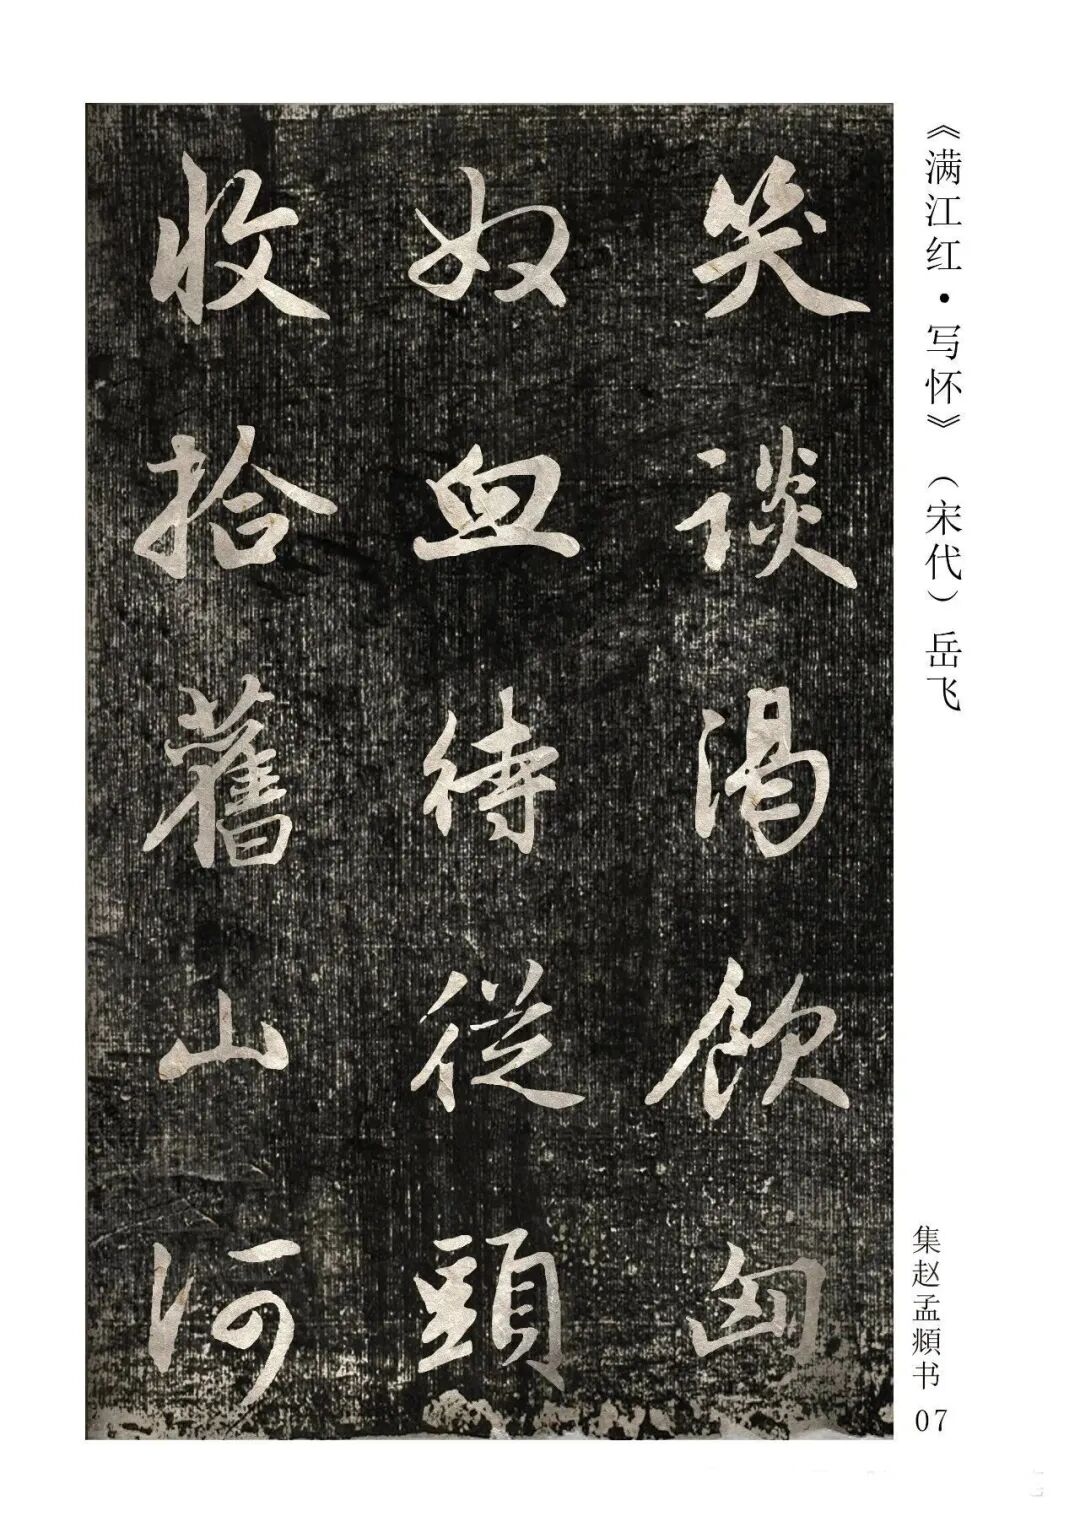 《满江红·写怀》（宋代）岳飞
笑談渴飲匈
奴血待從頭
收拾舊山河
集赵孟頫书 07